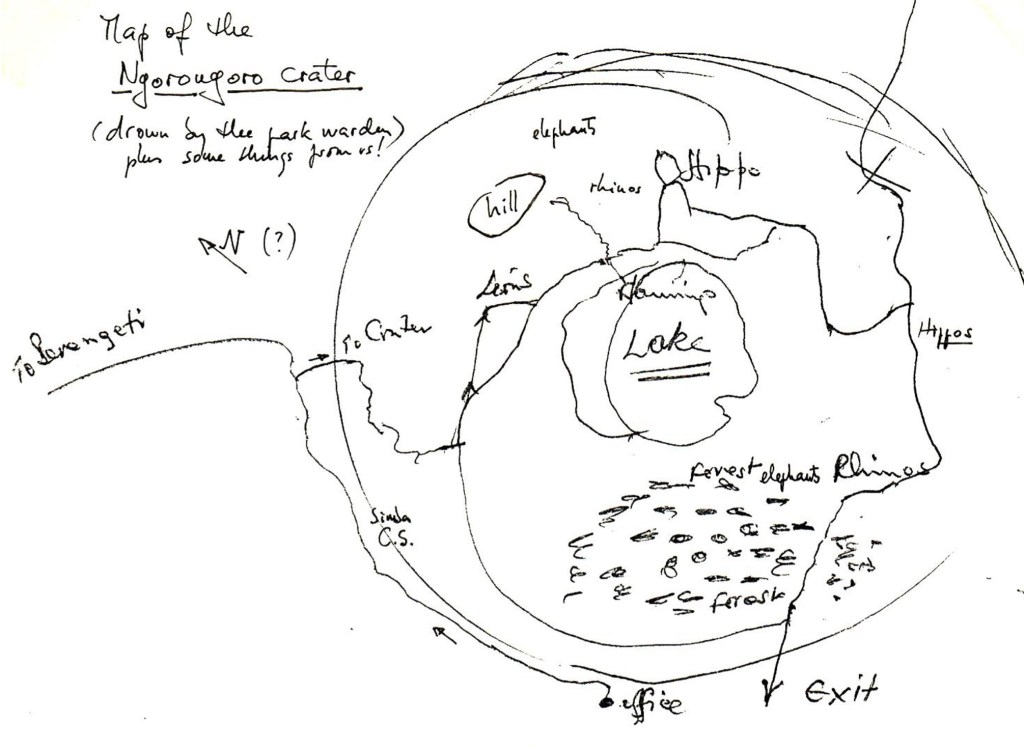 Map of the
Ngorongoro crater
(drown by the park warden)
plus some things from us!
elephants
Hippo
rhinos
hill
N (?)
Lions
Flamingo
To Crater
To Serengeti
Lake
Hippos
forest elephants Rhinos
Simba
C.S.
forest
Exit
office